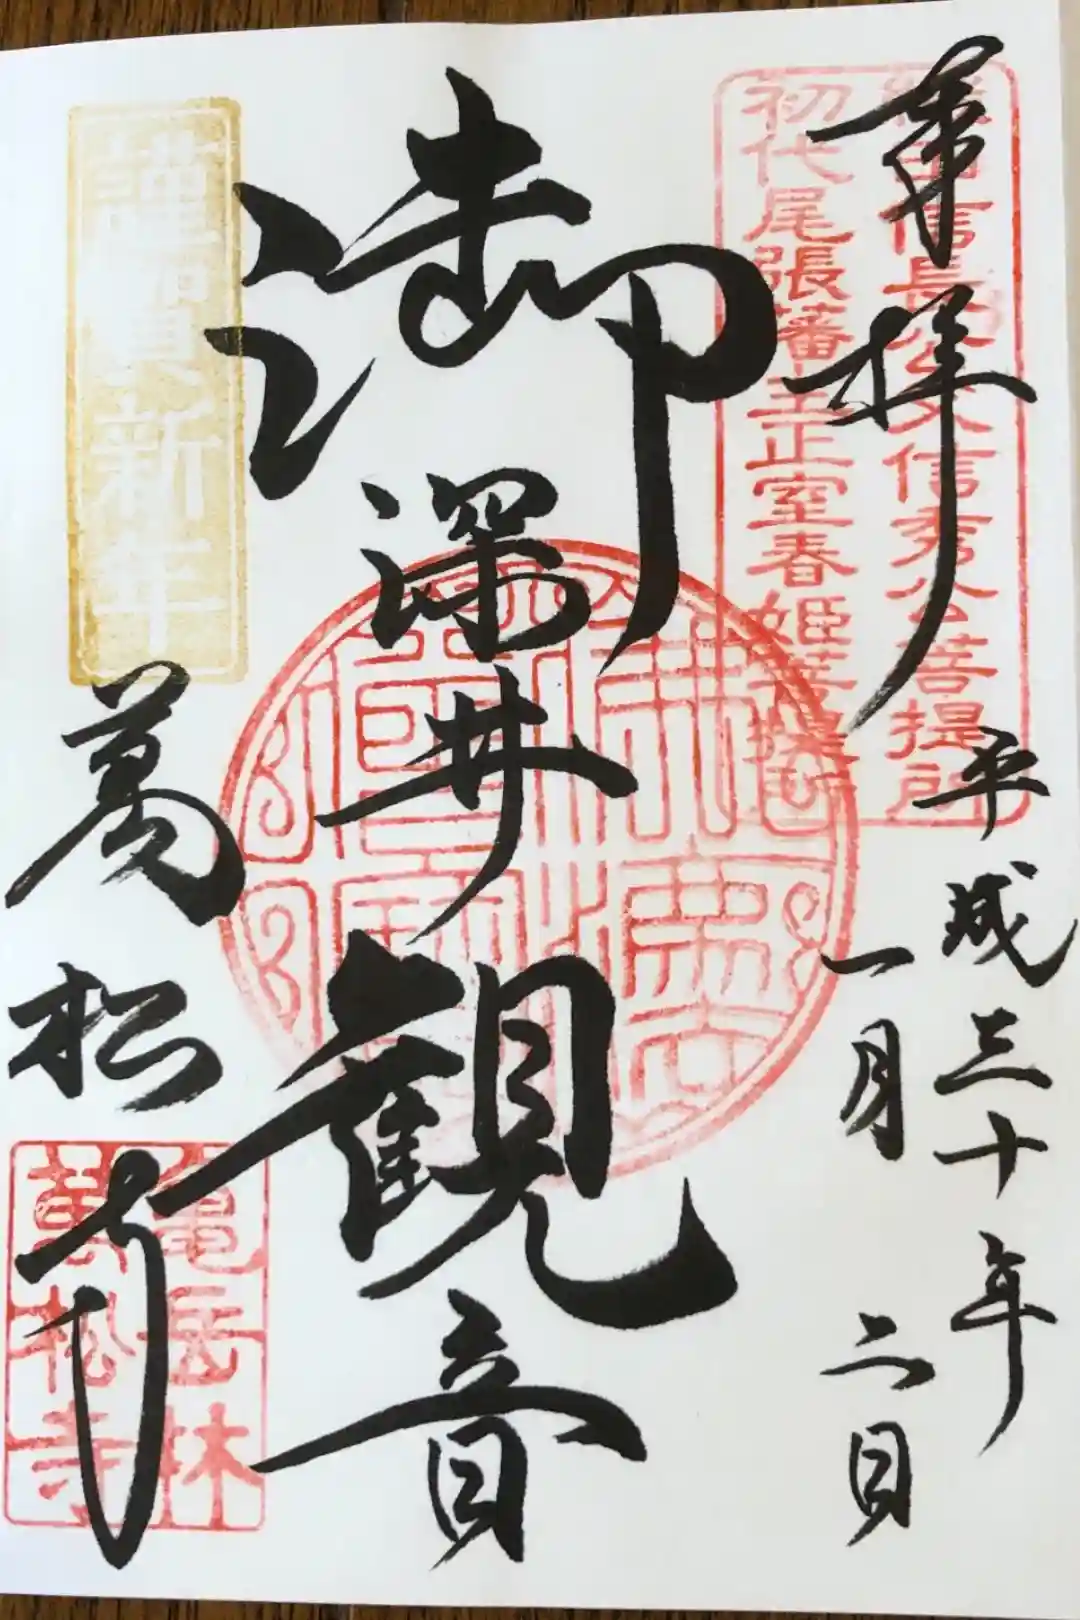 奉拝
織田信長公父信秀公菩提所
初代尾張藩主正室春姫菩提所
平成三十年
一月二日
御深井観音
佛法僧寶
謹賀新年
萬松寺
亀岳林
萬松寺